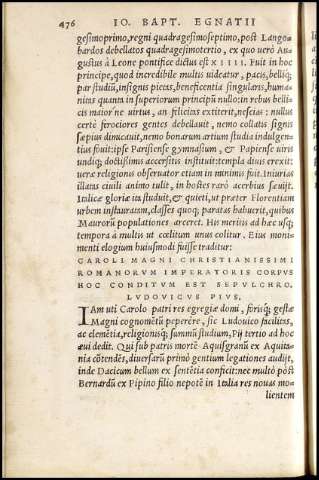 476 IO. BAPT. EGNATII
gesimoprimo, regni quadragesimoseptimo, post Lango
bardos debellatos quadragesimotertio, ex quo uerò Au-
gustus à Leone pontifice dictus est XIIII. Fuit in hoc
principe, quod incredibile multis uideatur, pacis, belliq;
par studiũ, insignis pietas, beneficentia singularis, huma-
nitas quanta in superiorum principũ nullo: in rebus belli-
cis maior'ne uirtus, an fœlicitas extiterit, nescias: nullus
certè ferociores gentes debellauit, nemo collatis signis
sæpius dimicauit, nemo bonarum artium studia indulgen-
tius fouit: ipse Parisiense gymnasium, & Papiense uiris
undiq; doctissimis accersitis instituit: templa diuis erexit:
ueræ religionis obseruator etiam in minimis fuit. Iniurias
illatas ciuili animo tulit, in hostes rarò acerbius sæuijt.
Italicæ gloriæ ita studuit, & quieti, ut præter Florentiam
urbem instauratam, classes quoq; paratas habuerit, quibus
Maurorũ populationes arceret. His meritis ad hæc usq;
tempora à multis ut cœlitum unus colitur. Eius moni-
menti elogium huiusmodi fuisse traditur:
CAROLI MAGNI CHRISTIANISSIMI
ROMANORVM IMPERATORIS CORPVS
HOC CONDITVM EST SEPVLCHRO.
LVDOVICVS PIVS.
IAm uti Carolo patri res egregiæ domi, forisq; gestæ
Magni cognomẽtũ peperêre, sic Ludouico facilitas,
ac clemẽtia, religionisq; summũ studium, Pij tertio ad hoc
æui dedit. Qui sub patris mortẽ Aquisgranũ ex Aquita
nia cõtendẽs, diuersarũ primò gentium legationes audijt,
inde Dacicum bellum ex sentẽtia conficit: nec multò pòst
Bernardũ ex Pipino filio nepotẽ in Italia res nouas mo-
lientem